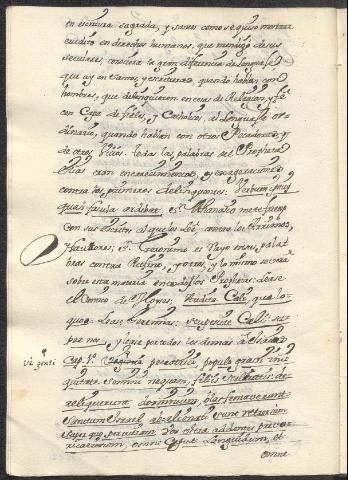 en escritura sagrada, y sanos como se quiso mostrar
erudito en derechos humanos, que mendigo de sus
seculares, conociera la gran diferencia de lenguaje
que ay en Santos, y escrituras, quando hablan con
hombres, que delinquieron en cosas de Religion, y fe
con Capa de fieles, y Catholicos, al lenguaje or-
dinario, quando hablan con otros Pecadores, y
de otros Vicios. todas las palabras del Propheta
Elias eran encarecimientos y exageraciones
contra los primeros delinquentes: Verbum ipsius
quasi facula ardebat. S. Athanasio
con sus escritos al que los leé contra los Arrianos,
y fautores; S. Geronimo es Rayo en sus pala-
bras contra Rufino, y otros, y lo mismo se verá
sobre esta materia en todos los Prophetas: lease
el Cantico de Moyses: Audite Caeli, quae lo-
quor. Lease Jeremias: obstupescite Caeli super
hoc, y lease por todos los demas á Isaias
Cap. 1. Vae genti peccatrici, populo gravi ini-
quitate, semini nequam, filiis sceleratis: de-
reliquerunt dominum, blasfemaverunt
Sanctum Israel, abalienati sunt retrorsum
super quo percutiam vos ultra addentes praeva-
ricationem, omne Caput languidum, et
omne
Vae genti